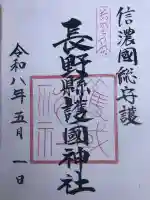 信濃國総守護
長野縣護國神社
令和八年五月一日